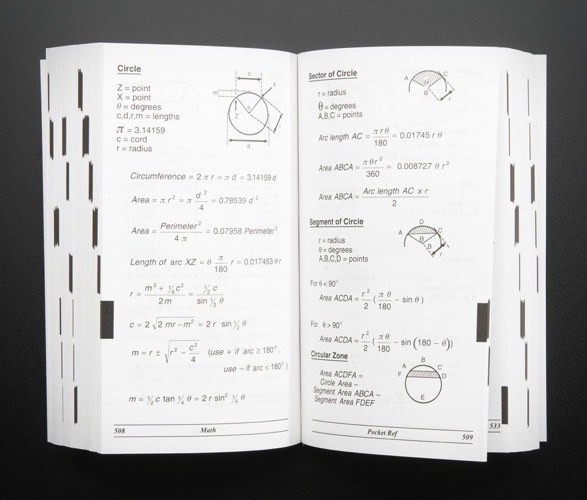 Circle
Z = point
X = point
θ = degrees
c,d,r,m = lengths
π = 3.14159
c = cord
r = radius
c
m
X
θ
Z
r
d
Circumference = 2 π r = π d = 3.14159 d
Area = π r² = π d²/4 = 0.78539 d²
Area = Perimeter²/4 π = 0.07958 Perimeter²
Length of arc XZ = θ π/180 r = 0.017453 θ r
r = m² + ¼c²/2m = ½c/sin ½ θ
c = 2 √2 mr - m² = 2 r sin ½ θ
m = r ± √r² - c²/4 (use + if arc ≥ 180°,
use - if arc < 180°)
m = ½ c tan ¼ θ = 2 r sin² ¼ θ
508 Math
Sector of Circle
r = radius
θ = degrees
A,B,C = points
A
C
θ
B
r
Arc length AC = π r θ/180 = 0.01745 r θ
Area ABCA = π θ r²/360 = 0.008727 θ r²
Area ABCA = Arc length AC x r/2
Segment of Circle
r = radius
θ = degrees
A,B,C,D = points
D
A
C
θ
B
r
For θ < 90°
Area ACDA = r²/2 (π θ/180 - sin θ)
For θ > 90°
Area ACDA = r²/2 (π θ/180 - sin (180 - θ))
Circular Zone
Area ACDFA =
Circle Area –
Segment Area ABCA –
Segment Area FDEF
B
A
C
F
D
E
Pocket Ref 509
533